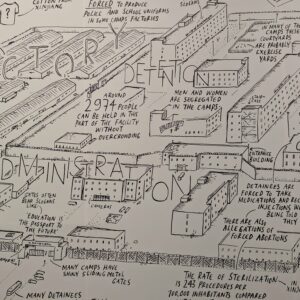 COTTON FROM
XINJIANG
FORCED TO PRODUCE
POLICE AND SCHOOL UNIFORMS
IN SOME CAMPS FACTORIES
SLOGANS
IN MANY OF T
CAMPS THESE
COURTYARDS
ARE PROBABLY
EXERCISE
YARDS
CTORY
DETENTION
AROUND
2974 PEOPLE
CAN BE HELD IN THIS
PART OF THE FACILITY
WITHOUT
OVERCROWDING
MEN AND WOMEN
ARE SEGREGATED
IN THE CAMPS
ENTRANCE
BUILDING
DMINISTRATION
GATES OFTEN
BEAR SLOGANS
LIKE
EDUCATION IS
THE PASSPORT TO
THE FUTURE
CAMERAS
DETAINEES ARE
FORCED TO TAKE
MEDICATIONS AND REC
INJECTIONS WI
BEING TOLD
THERE ARE ALS
ALLEGATIONS OF
FORCED ABORTIONS
MANY CAMPS HAVE
SHINY SLIDING METAL
GATES
THE RATE OF STERILIZ
IS 243 PROCEDURES PER
100,000 INHABITANTS COMPARED
MANY DETAINEES